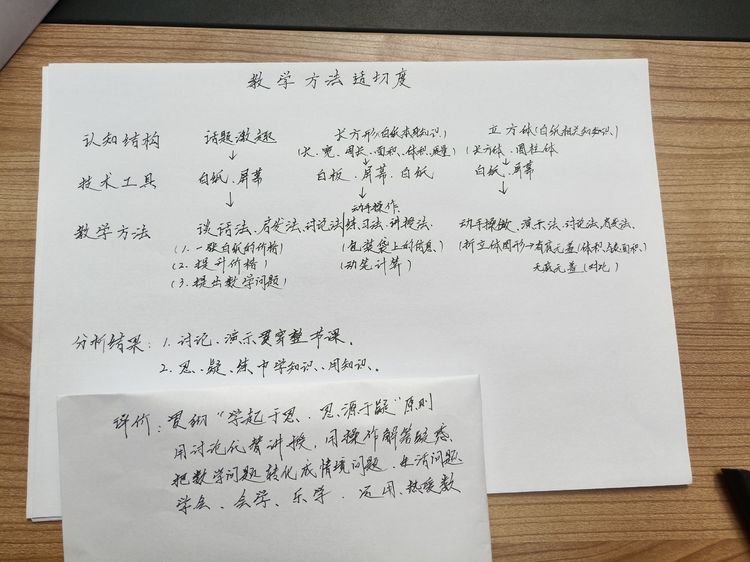 教学方法适切度
认知结构 话题激趣 长方形(白纸本身知识) 立方体(白纸相关知识)
(长、宽、周长、面积、体积、质量) (长方体、圆柱体
↓ ↓ ↓
技术工具 白纸、屏幕 白板、屏幕、白纸 白纸、屏幕
↓ ↓ ↓
动手操作、
教学方法 谈话法、启发法、讨论法 练习法、讲授法 动手操做、演示法、讨论法、启发法、
(1.一张白纸的价格) (包装袋上的信息、 (折立体图形→有底无盖(体积、表面积)
(2.提升价格) (动笔计算) 无底无盖(对比)
(3.提出数学问题)
分析结果:1.讨论、演示贯穿整节课。
2.思、疑、练中学知识、用知识。
评价:贯彻“学起于思、思源于疑”原则
用讨论代替讲授,用操作解答疑惑
把数学问题转化成情境问题、生活问题
学会、会学、乐学、运用、热爱数